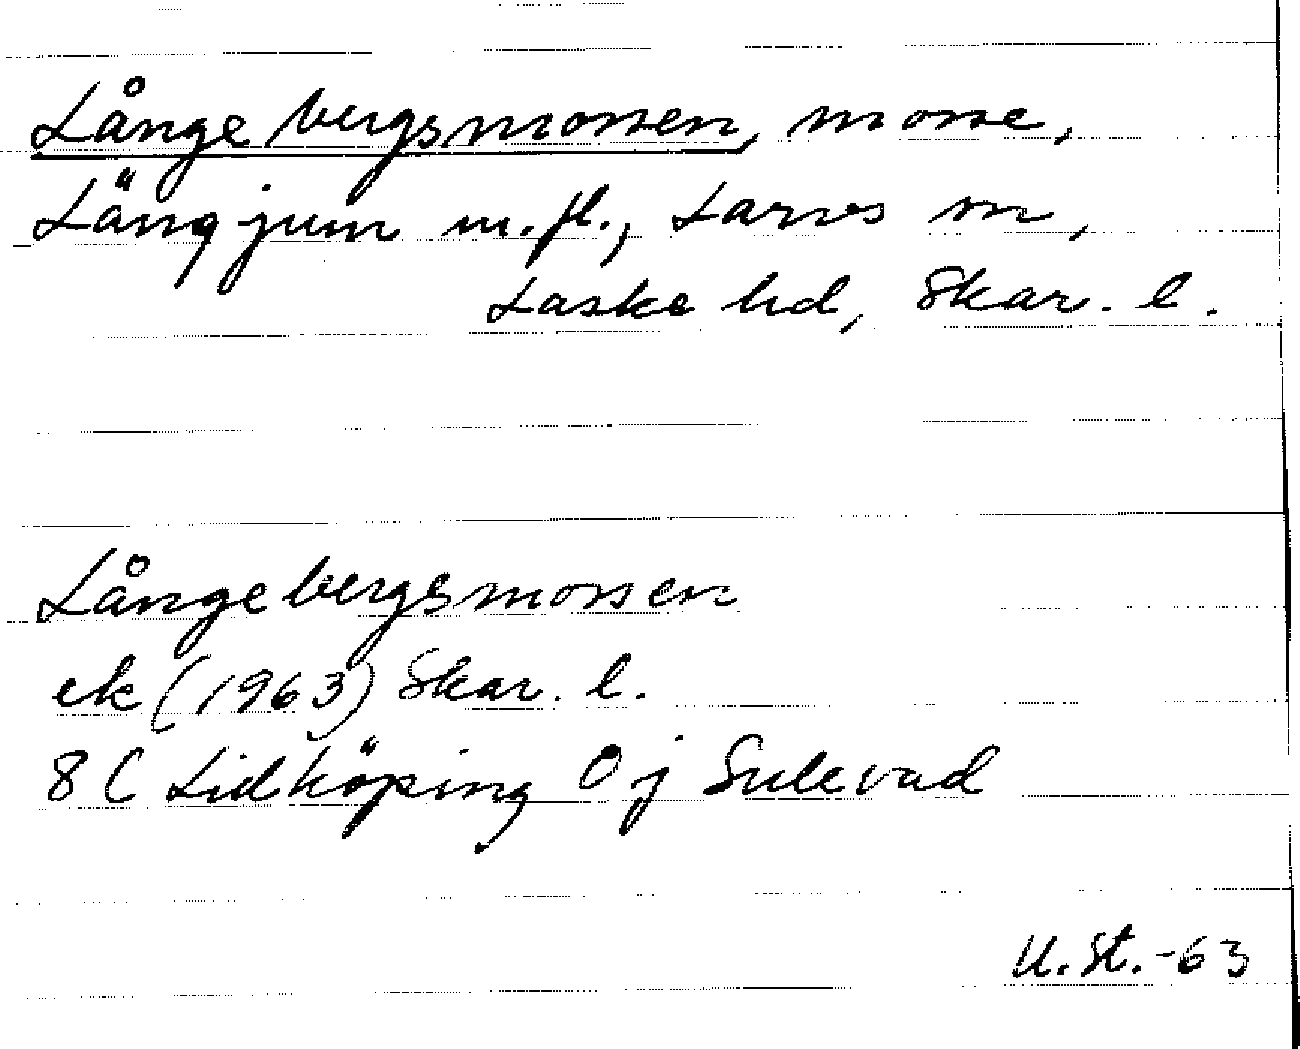 Långebergsmossen, mosse,
Längjum m.fl., Larvs m,
Laske hd, Skar. l.
Långebergsmossen
ek (1963) Skar. l.
8 C Lidköping 0 j Sulevad
U.St.-63